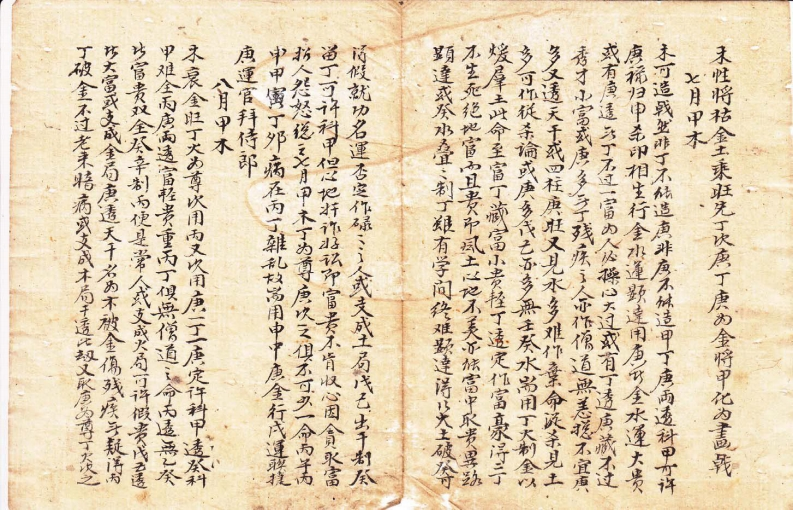 木性將枯金土乘旺先丁次庚丁庚为金將甲化为畫戟
七月甲木
未可造戟然非丁不能造庚非庚不能造甲丁庚两透科甲可許
庚祿归申杀印相生行金水運顯達用庚於金水運大贵
或有庚透無丁不过一富为人必操心大过或有丁透庚藏不过
秀才小富或庚多無丁残疾之人亦作僧道無恙總不宜庚
多又透天干或四柱庚旺又見水多难作棄命從杀見土
多可作從杀論或庚多戊己亦多無壬癸水尚用丁火制金以
煖群土此命至富丁藏富小贵輕丁透定作富豪得二丁
不生死绝地富而且贵即風土心地不美亦能富中取贵異路
顯達或癸水叠之制丁雖有学問终难顯達得以大土破癸可
尚假就功名運否定作碌之之人或支成土局戊己出干制癸
留丁可許科甲但心地奸詐好訟即富贵不肯收心因貪取富
於人怨怒總之七月甲木丁为尊庚次之俱不可少一命丙午丙
申甲寅丁卯病在丙丁雜乱故尚用申中庚金行戊運聯捷
庚運官拜侍郎
八月甲木
木衰金旺丁火为尊次用丙又次用庚一丁一庚定許科甲透癸科
甲难全丙庚两透富輕贵重丙丁俱無僧道之命丙透無乙癸
皆富贵双全癸辛制丙便是常人或支成火局可許假贵戊己透
皆大富或支成金局庚透天干名为木被金傷残疾無疑得丙
丁破金不过老来暗病或支成木局干透比劫又取庚为尊丁火次之